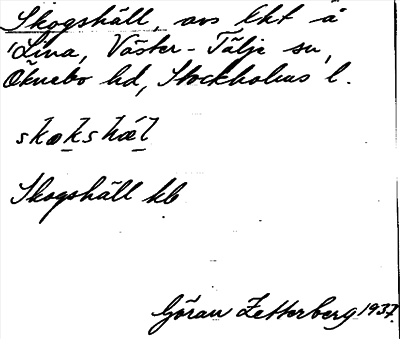 Skogshäll, avs lht å
Lina, Väster-Tälje sn,
Öknebo hd, Stockholms l.
skækshæl
Skogshäll kb
Göran Zetterberg 1937.